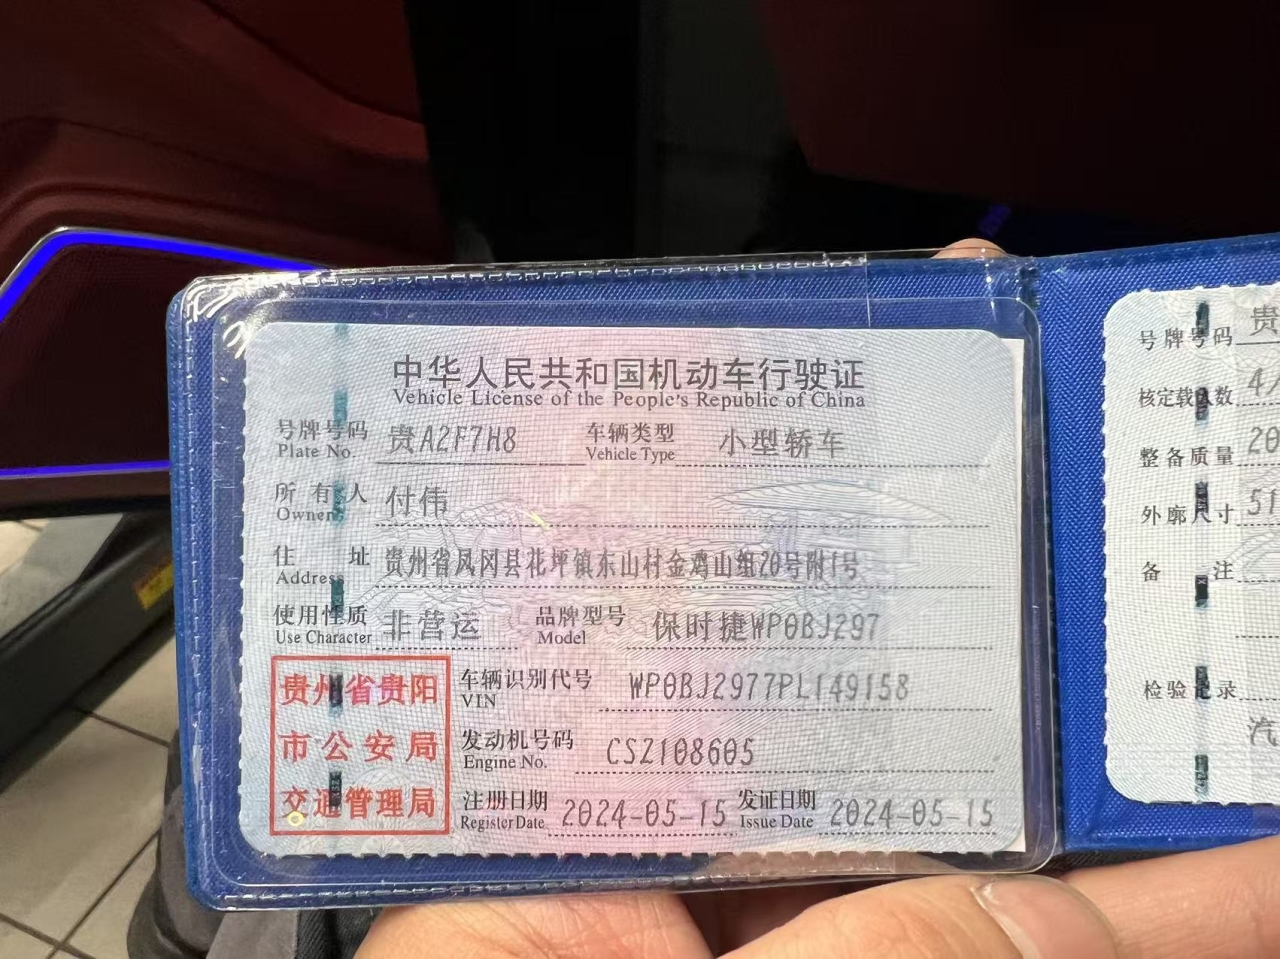 中华人民共和国机动车行驶证
Vehicle License of the People's Republic of China
号牌号码 贵A2F7H8 车辆类型 小型轿车
Plate No. Vehicle Type
所有人 付伟
Owner
住址 贵州省凤冈县花坪镇东山村金鸡山组20号附1号
Address
使用性质 非营运 品牌型号 保时捷WP0BJ297
Use Character Model
车辆识别代号 WP0BJ2977PL149158
VIN
发动机号码 CSZ108605
Engine No.
注册日期 2024-05-15 发证日期 2024-05-15
Register Date Issue Date
贵州省贵阳
市公安局
交通管理局
号牌号码 贵
核定载人数 4
整备质量 20
外廓尺寸 51
备注
检验记录
汽